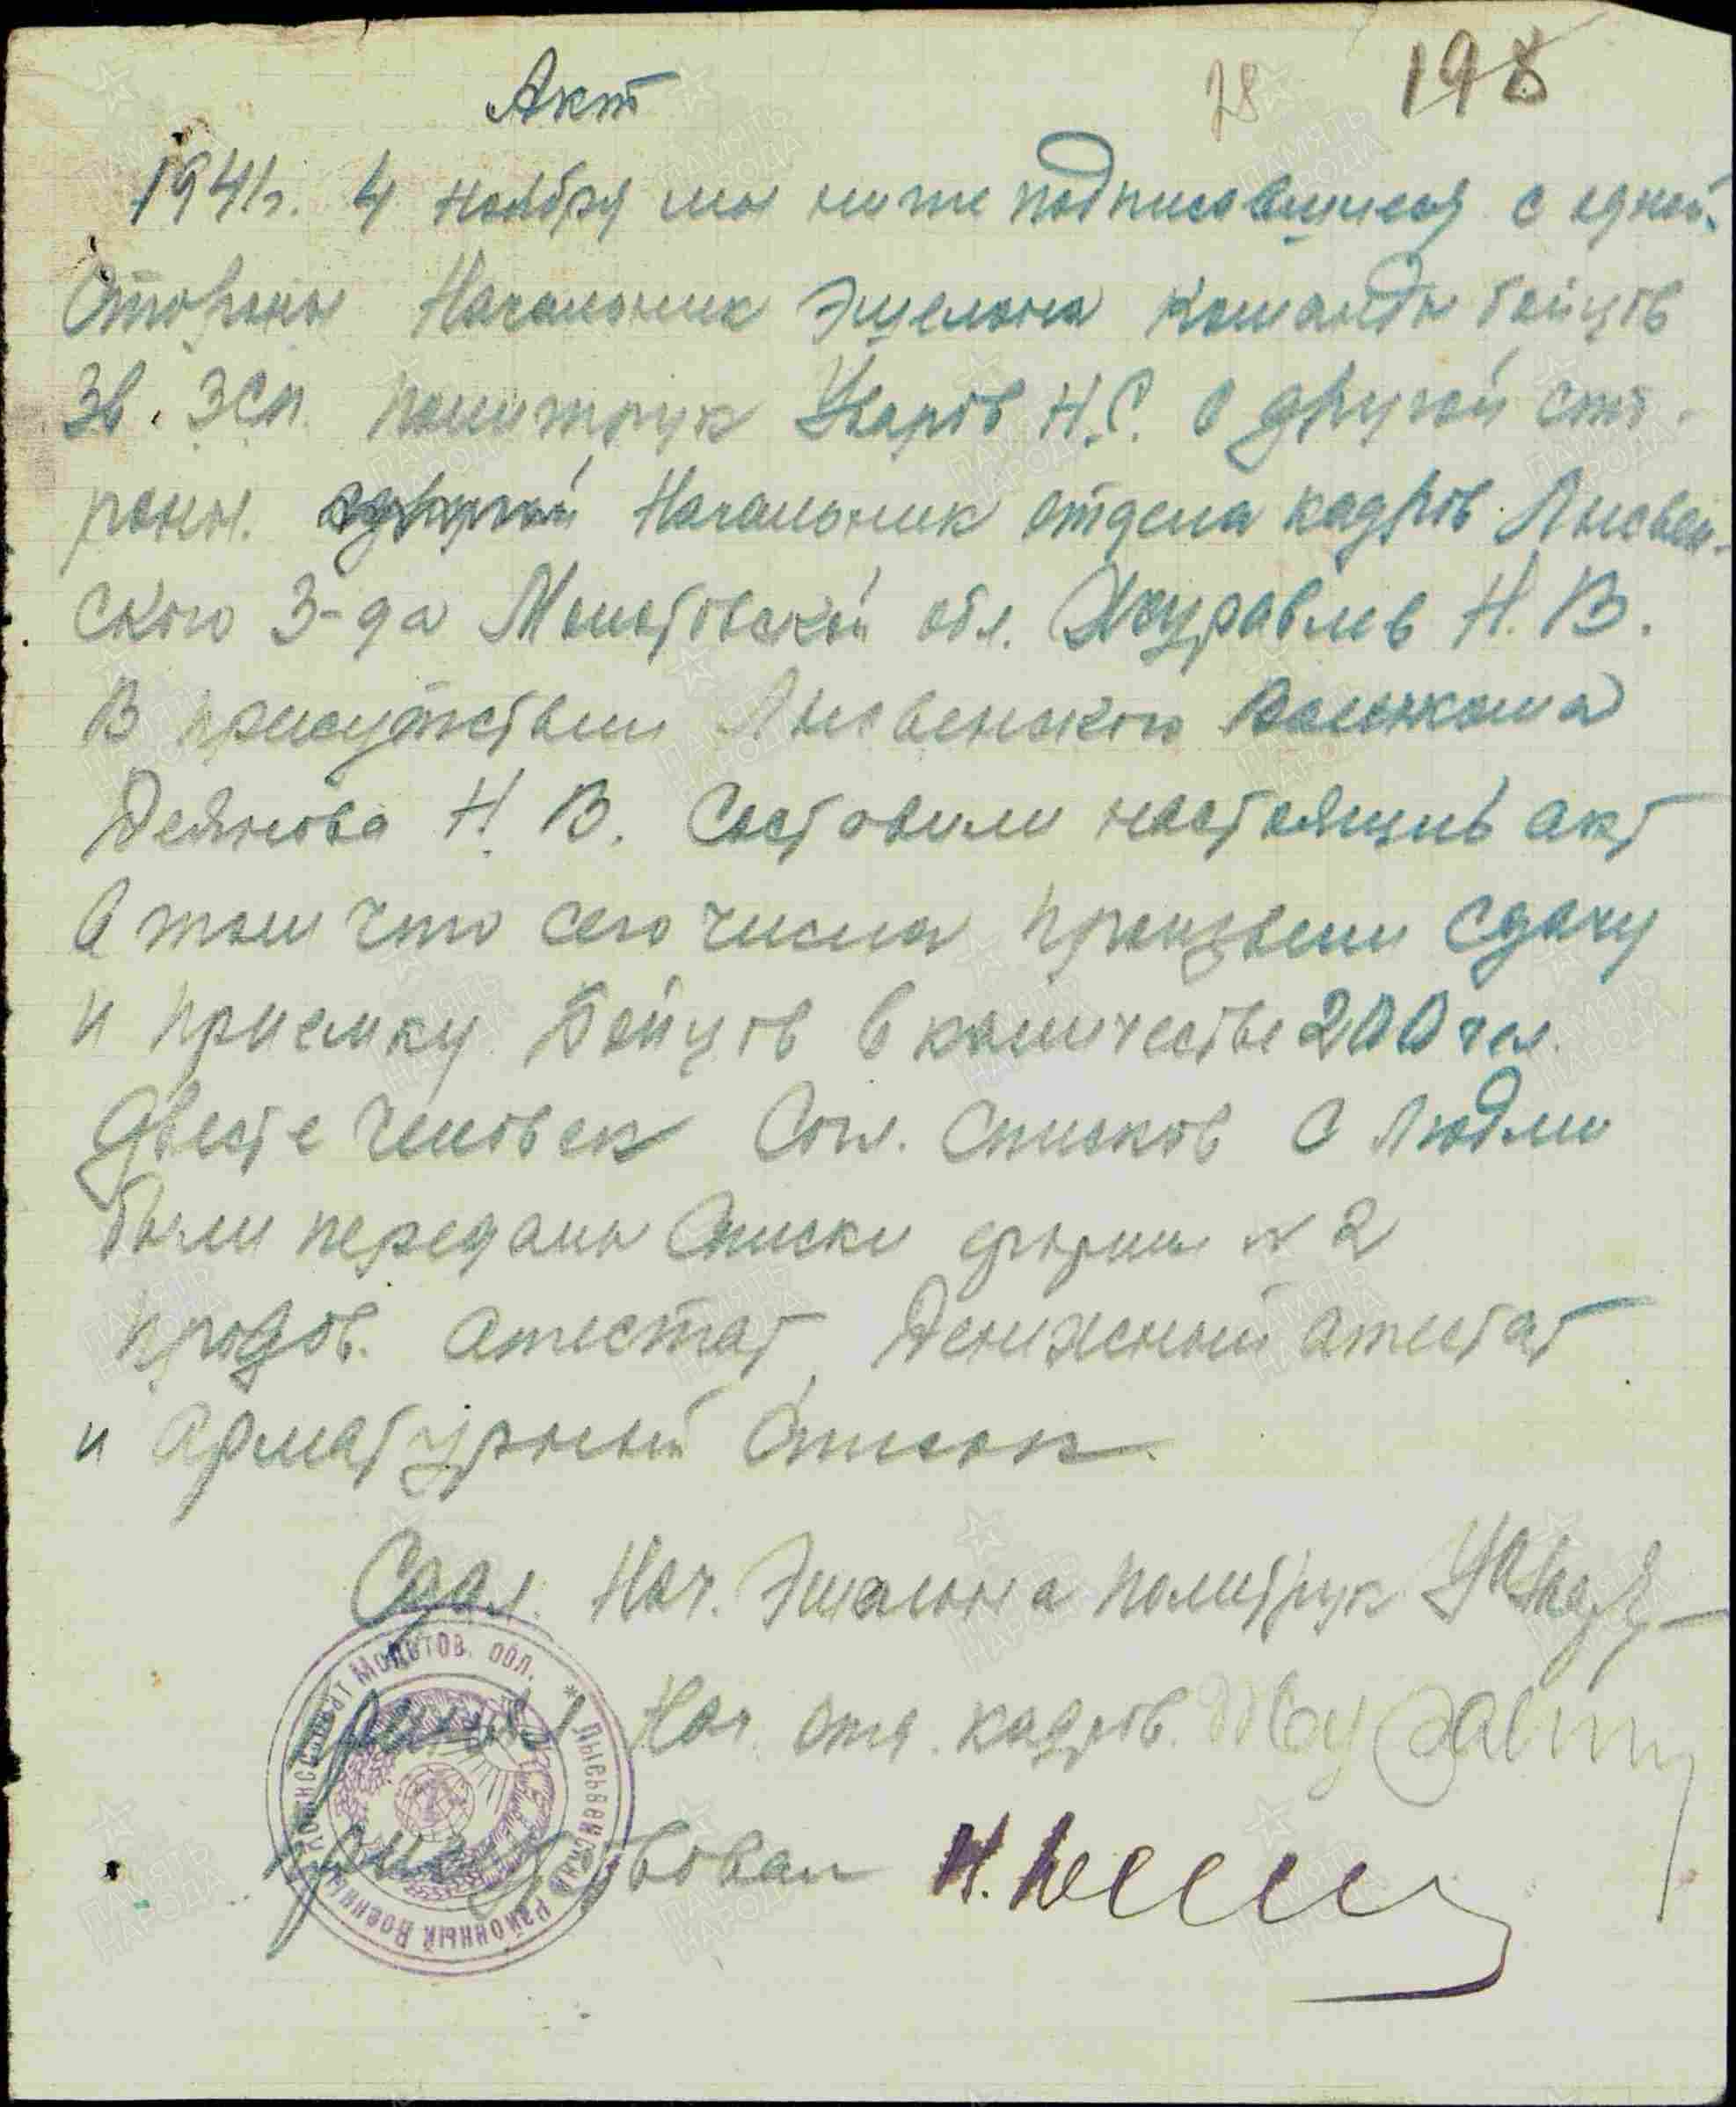 Акт
28 198
1941г. 4 ноября мы ниже подписавшиеся с одной
Стороны Начальник Эшелона команды бойцов
Зв. ЗСП. политрук Уваров Н.С. с другой сто-
роны. Начальник отдела кадров Лысьвен-
ского З-да Молотовской обл. Журавлев Н. В.
В присутствии Лысвенского Военкома
Демянова Н. В. Составили настоящий акт
О том что сего числа произвели сдачу
и приемку Бойцов в количестве 200 чел.
Двести человек Согл. списков С людми
были переданы Списки формы № 2
продов. атестат, Денижный атестат
и арматурный Список.
Сдал. Нач. Эшалона политрук Увар
Принял Нач. отд. кадров. Журавл
присутствовал
Лысьвенский районный Военный Комиссариат Молотов. обл.
ПАМЯТЬ НАРОДА